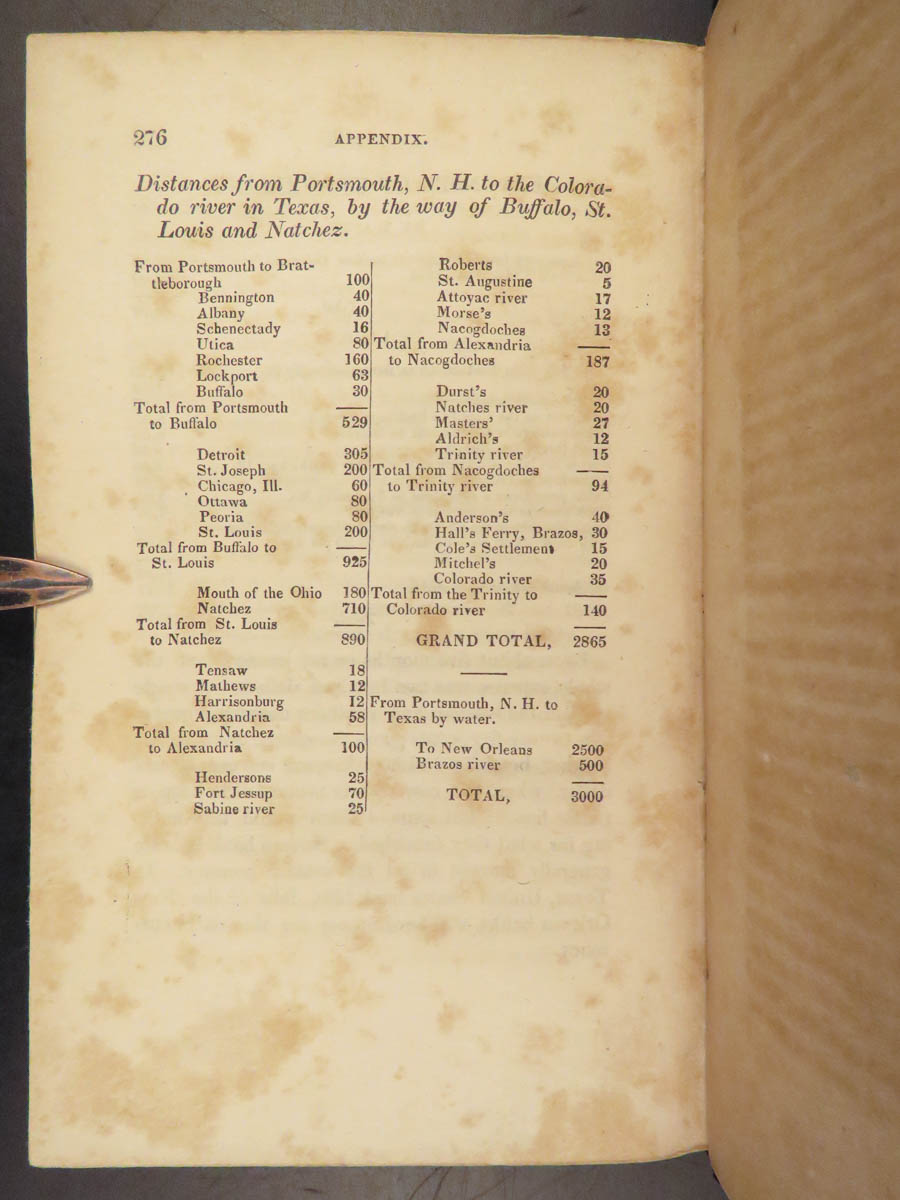 276
APPENDIX.
Distances from Portsmouth, N. H. to the Colora-
do river in Texas, by the way of Buffalo, St.
Louis and Natchez.
From Portsmouth to Brat-
tleborough 100
Bennington 40
Albany 40
Schenectady 16
Utica 80
Rochester 160
Lockport 63
Buffalo 30
Total from Portsmouth
to Buffalo 529
Detroit 305
St. Joseph 200
Chicago, Ill. 60
Ottawa 80
Peoria 80
St. Louis 200
Total from Buffalo to
St. Louis 925
Mouth of the Ohio 180
Natchez 710
Total from St. Louis
to Natchez 890
Tensaw 18
Mathews 12
Harrisonburg 12
Alexandria 58
Total from Natchez
to Alexandria 100
Hendersons 25
Fort Jessup 70
Sabine river 25
Roberts 20
St. Augustine 5
Attoyac river 17
Morse's 12
Nacogdoches 13
Total from Alexandria
to Nacogdoches 187
Durst's 20
Natches river 20
Masters' 27
Aldrich's 12
Trinity river 15
Total from Nacogdoches
to Trinity river 94
Anderson's 40
Hall's Ferry, Brazos, 30
Cole's Settlement 15
Mitchel's 20
Colorado river 35
Total from the Trinity to
Colorado river 140
GRAND TOTAL, 2865
From Portsmouth, N. H. to
Texas by water.
To New Orleans 2500
Brazos river 500
TOTAL, 3000